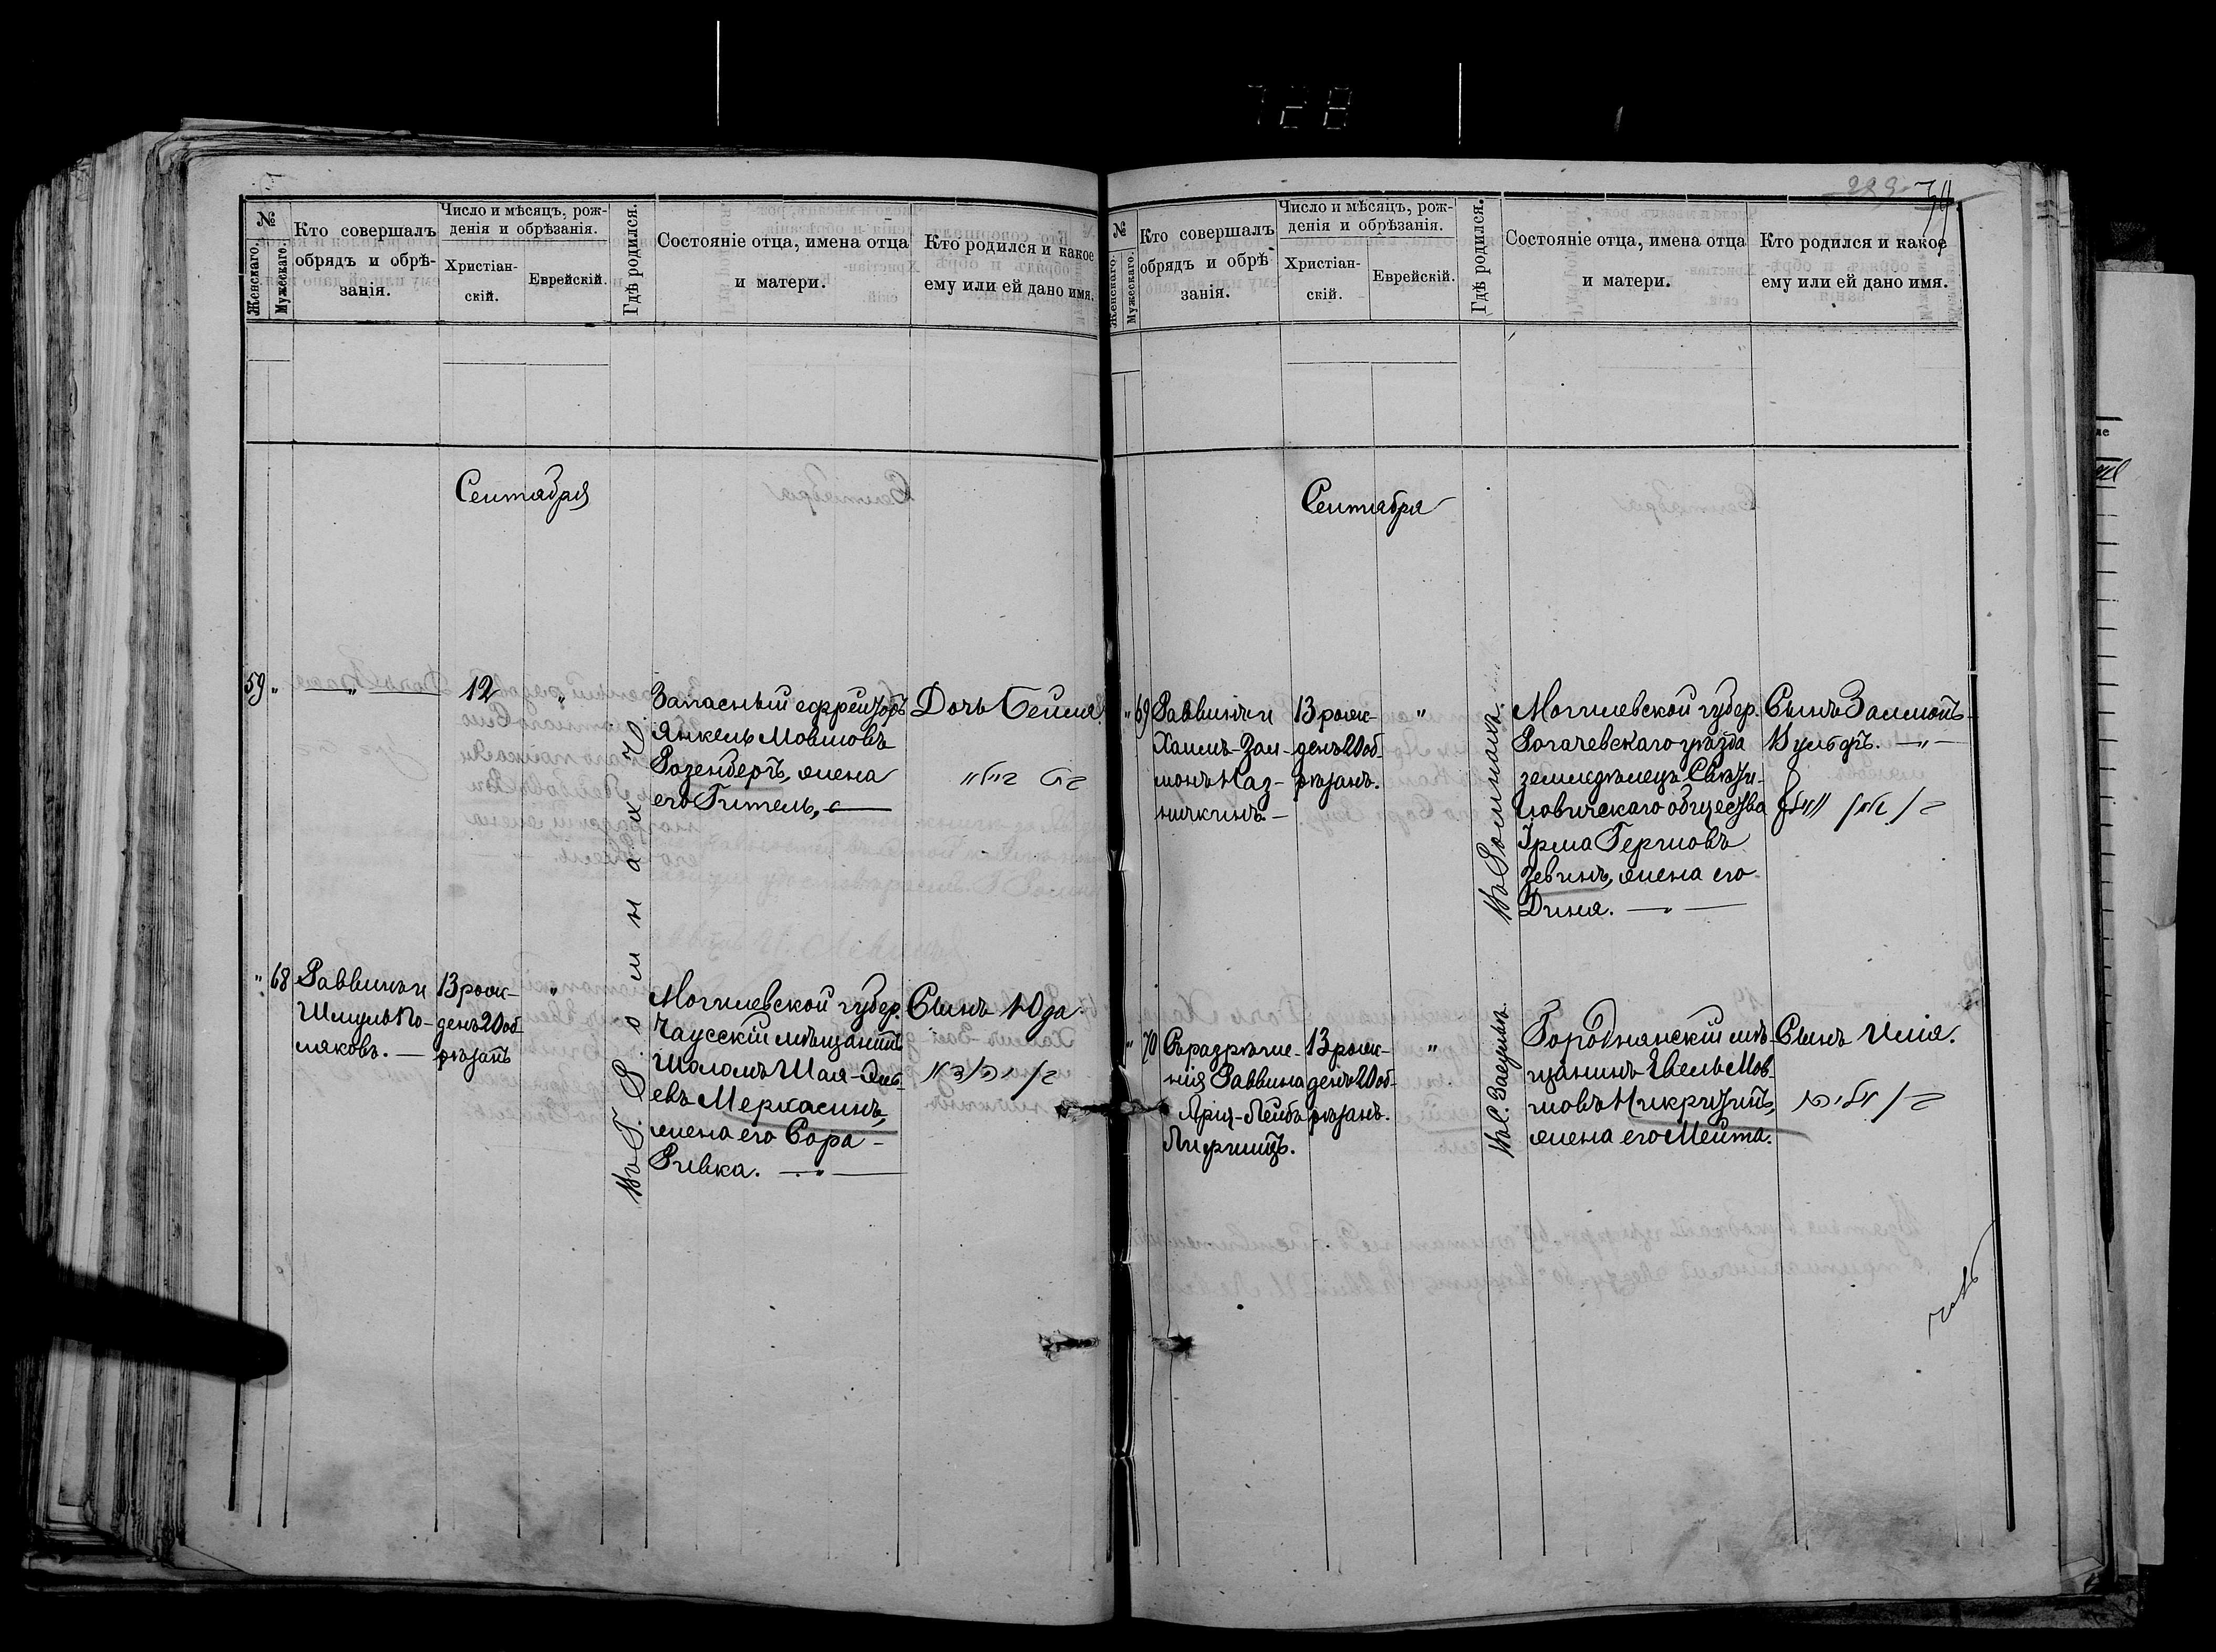 728
229 74
№
Женскаго.
Мужескаго.
Кто совершалъ
обрядъ и обрѣ-
занія.
Число и мѣсяцъ, рож-
денія и обрѣзанія.
Христіан-
скій.
Еврейскій.
Гдѣ родился.
Состояніе отца, имена отца
и матери.
Кто родился и какое
ему или ей дано имя.
Сентября
59 " — " —
12
"
Запасный ефрейторъ
Янкель Мовшовъ
Розенбергъ, жена
его Гитель, —
Дочь Бейля
בת ביילא
" 68
Раввинъ и
Шмуль По-
ляковъ. —
13 рож-
денъ 20 об
рѣзанъ
"
Въ Г. Ромнахъ
Могилевской губер.
Чаусскій мѣщанинъ
Шоломъ Шая-
евъ Меркасинъ,
жена его Сора-
Ривка. — " —
Сынъ Юда.
בן יהודא
№
Женскаго.
Мужескаго.
Кто совершалъ
обрядъ и обрѣ-
занія.
Число и мѣсяцъ, рож-
денія и обрѣзанія.
Христіан-
скій.
Еврейскій.
Гдѣ родился.
Состояніе отца, имена отца
и матери.
Кто родился и какое
ему или ей дано имя.
Сентября
" 69
Раввинъ и
Хаимъ-Зал-
монъ Каз-
ничкинъ. —
13 рож-
денъ 20 об
рѣзанъ.
"
Въ Ромнахъ.
Могилевской губер.
Рогачевскаго уѣзда
земледѣлецъ
общества
Гершовъ
Зевинъ, жена его
Дина. — " —
Сынъ Залмонъ-
Вульфъ. — " —
בן זלמן וואלף
" 70
Съ разрѣше-
нія Раввина
Арія-Лейбъ
Лифшицъ.
13 рож-
денъ 20 об-
рѣзанъ.
"
Городнянскій мѣ-
щанинъ Евель Мов-
шовъ Никритинъ,
жена его Мейта.
Сынъ Илія.
בן אליהו